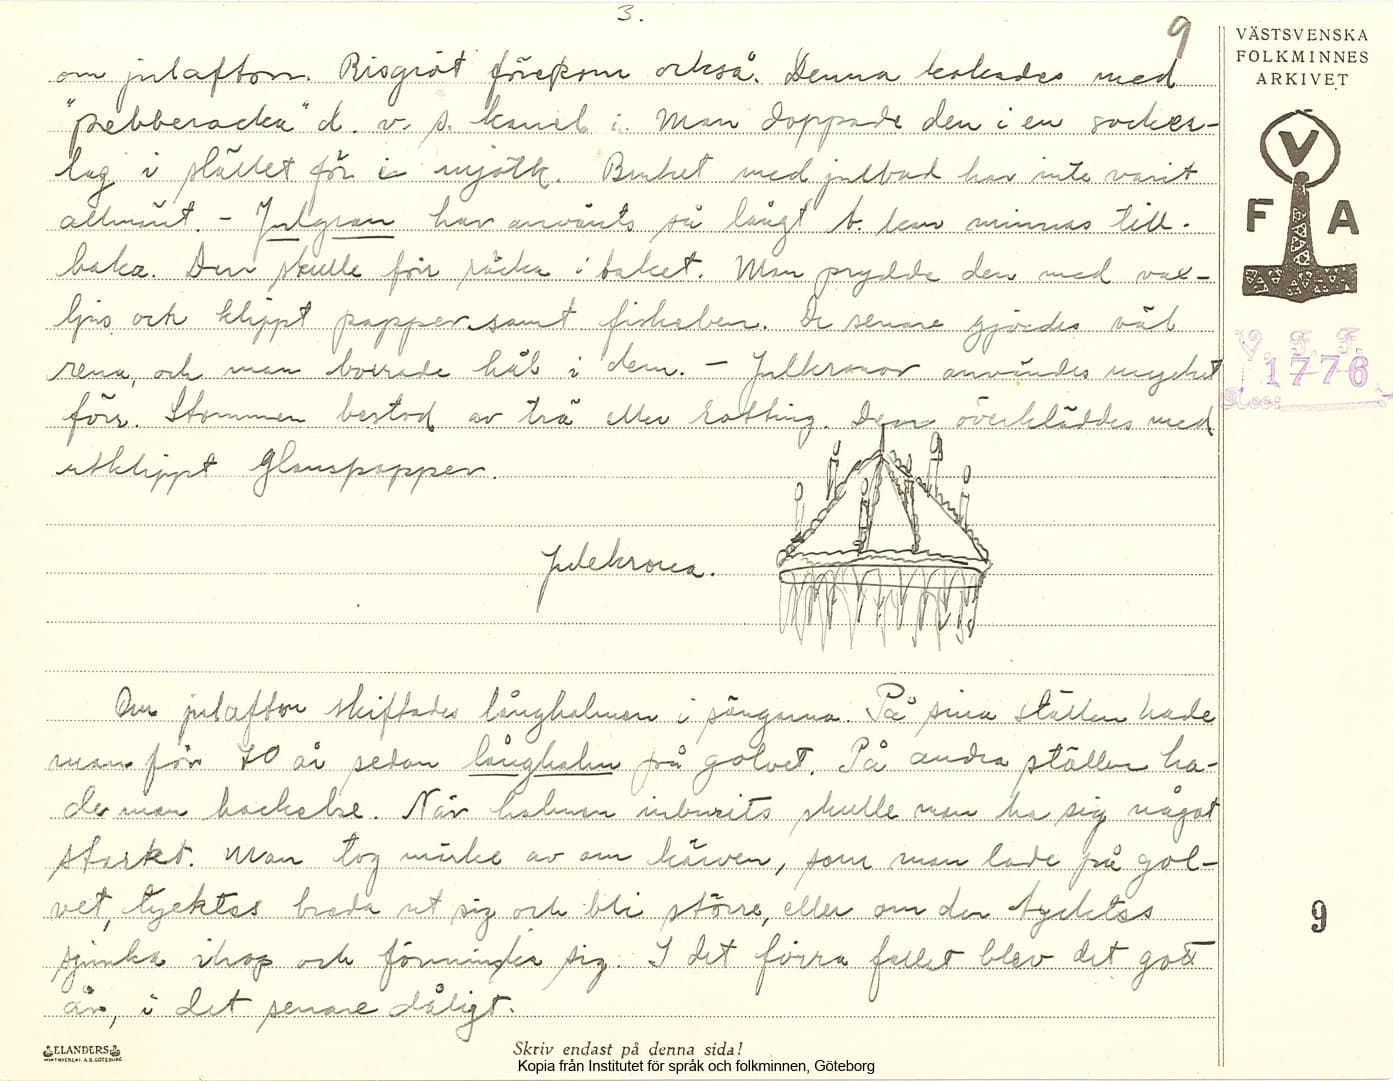 3.
9
VÄSTSVENSKA
FOLKMINNES
ARKIVET
V
F A
V. F. F.
1776
om julafton. Risgröt förekom också. Denna kokades med
"pebberacka" d. v. s. kanel i. Man doppade den i en socker-
lag i stället för i mjölk. Bruket med julbad har inte varit
allmänt. - Julgran har använts så långt b. kan minnas till-
baka. Den skulle för räcka i taket. Man prydde den med vax-
ljus och klippt papper samt fiskeben. De senare gjordes väl
rena, och man borrade hål i dem. - Julkronor användes mycket
förr. Stommen bestod av trä eller rotting. Den överkläddes med
utklippt glanspapper.
Julekrona.
Om julafton skiftades långhalmen i sängarna. På sina ställen hade
man för 70 år sedan långhalm på golvet. På andra ställen ha-
de man hackelse. När halmen inburits skulle man ha sig något
starkt. Man tog märke av om kärven, som man lade på gol-
vet, tycktes breda ut sig och bli större, eller om den tycktes
sjunka ihop och förminska sig. I det förra fallet blev det gott
år, i det senare dåligt.
9
ELANDERS
Skriv endast på denna sida!
Kopia från Institutet för språk och folkminnen, Göteborg